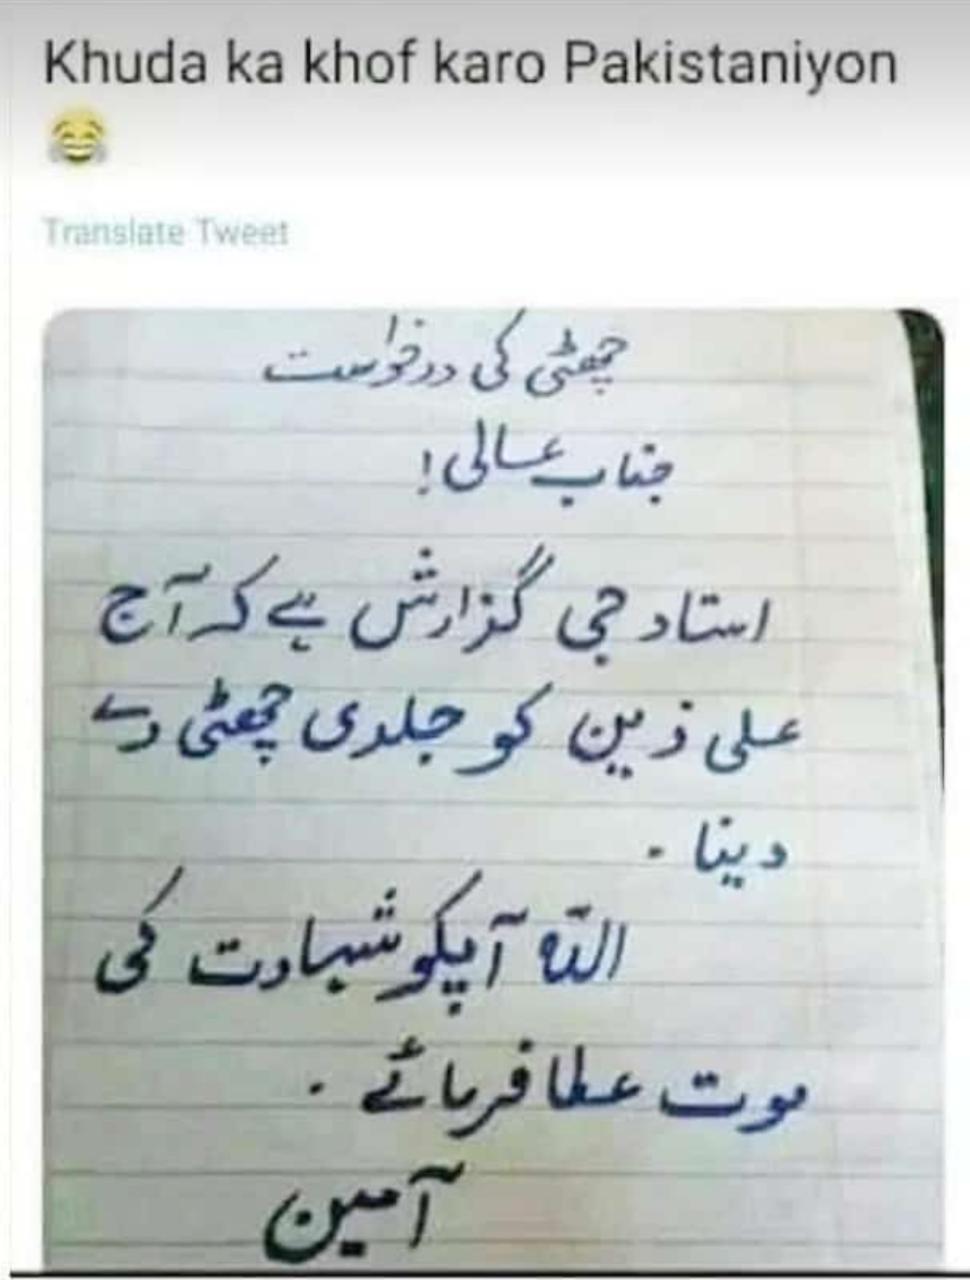 Khuda ka khof karo Pakistaniyon
😂
Translate Tweet
چھٹی کی درخواست
جناب عالی!
استاد جی گزارش ہے کہ آج
علی ذین کو جلدی چھٹی دے
دینا۔
اللہ آپکو شہادت کی
موت عطا فرمائے۔
آمین